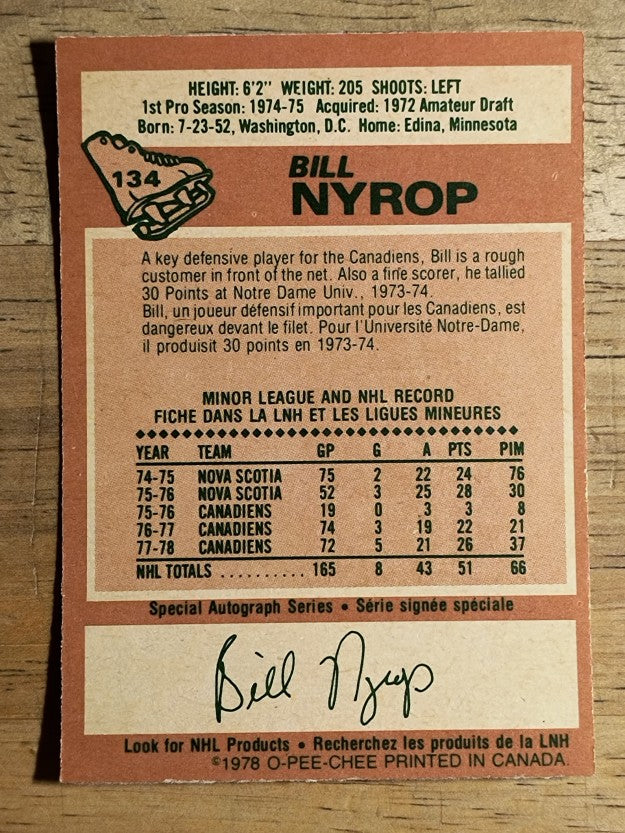 HEIGHT: 6'2" WEIGHT: 205 SHOOTS: LEFT
1st Pro Season: 1974-75 Acquired: 1972 Amateur Draft
Born: 7-23-52, Washington, D.C. Home: Edina, Minnesota
134
BILL
NYROP
A key defensive player for the Canadiens, Bill is a rough
customer in front of the net. Also a fine scorer, he tallied
30 Points at Notre Dame Univ., 1973-74.
Bill, un joueur défensif important pour les Canadiens, est
dangereux devant le filet. Pour l'Université Notre-Dame,
il produisit 30 points en 1973-74.
MINOR LEAGUE AND NHL RECORD
FICHE DANS LA LNH ET LES LIGUES MINEURES
YEAR TEAM GP G A PTS PIM
74-75 NOVA SCOTIA 75 2 22 24 76
75-76 NOVA SCOTIA 52 3 25 28 30
75-76 CANADIENS 19 0 3 3 8
76-77 CANADIENS 74 3 19 22 21
77-78 CANADIENS 72 5 21 26 37
NHL TOTALS .......... 165 8 43 51 66
Special Autograph Series • Série signée spéciale
Bill Nyrop
Look for NHL Products • Recherchez les produits de la LNH
©1978 O-PEE-CHEE PRINTED IN CANADA.